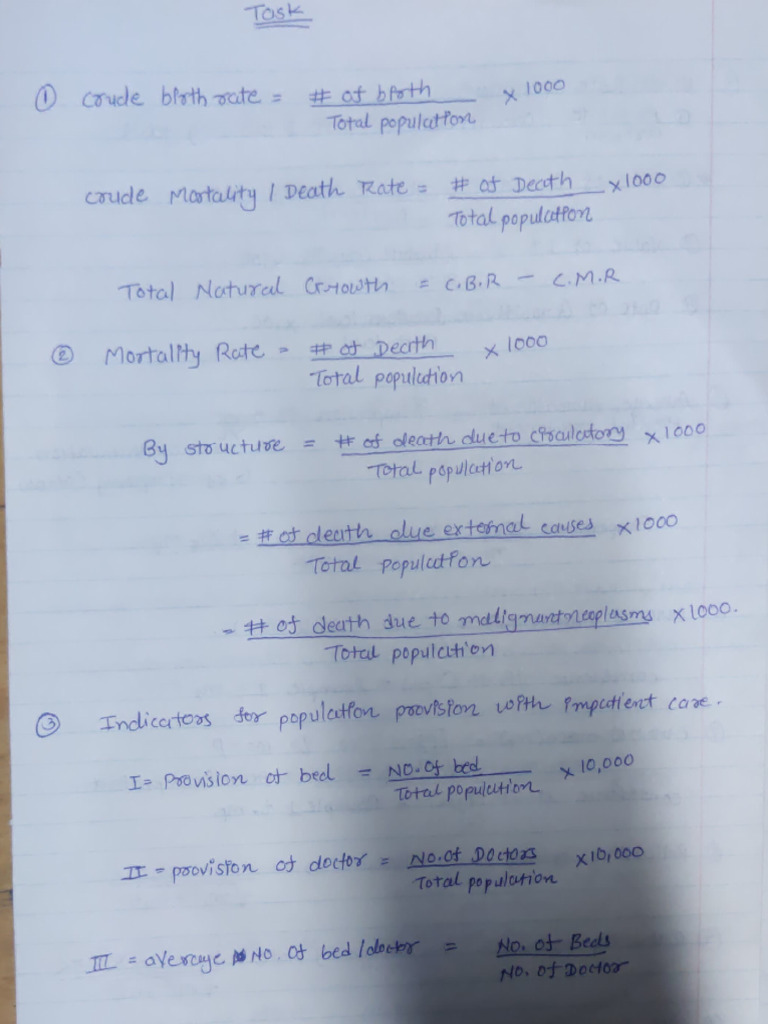 Task
① Crude birth rate = # of birth × 1000
Total population
Crude Mortality / Death Rate = # of Death × 1000
Total population
Total Natural Growth = C.B.R - C.M.R
② Mortality Rate = # of Death × 1000
Total population
By structure = # of death due to circulatory × 1000
Total population
= # of death due external causes × 1000
Total population
= # of death due to malignant neoplasms × 1000.
Total population
③ Indicators for population provision with impatient care.
I = Provision of bed = No. of bed × 10,000
Total population
II = provision of doctor = No. of Doctors × 10,000
Total population
III = average No. of bed / doctor = No. of Beds
No. of Doctor